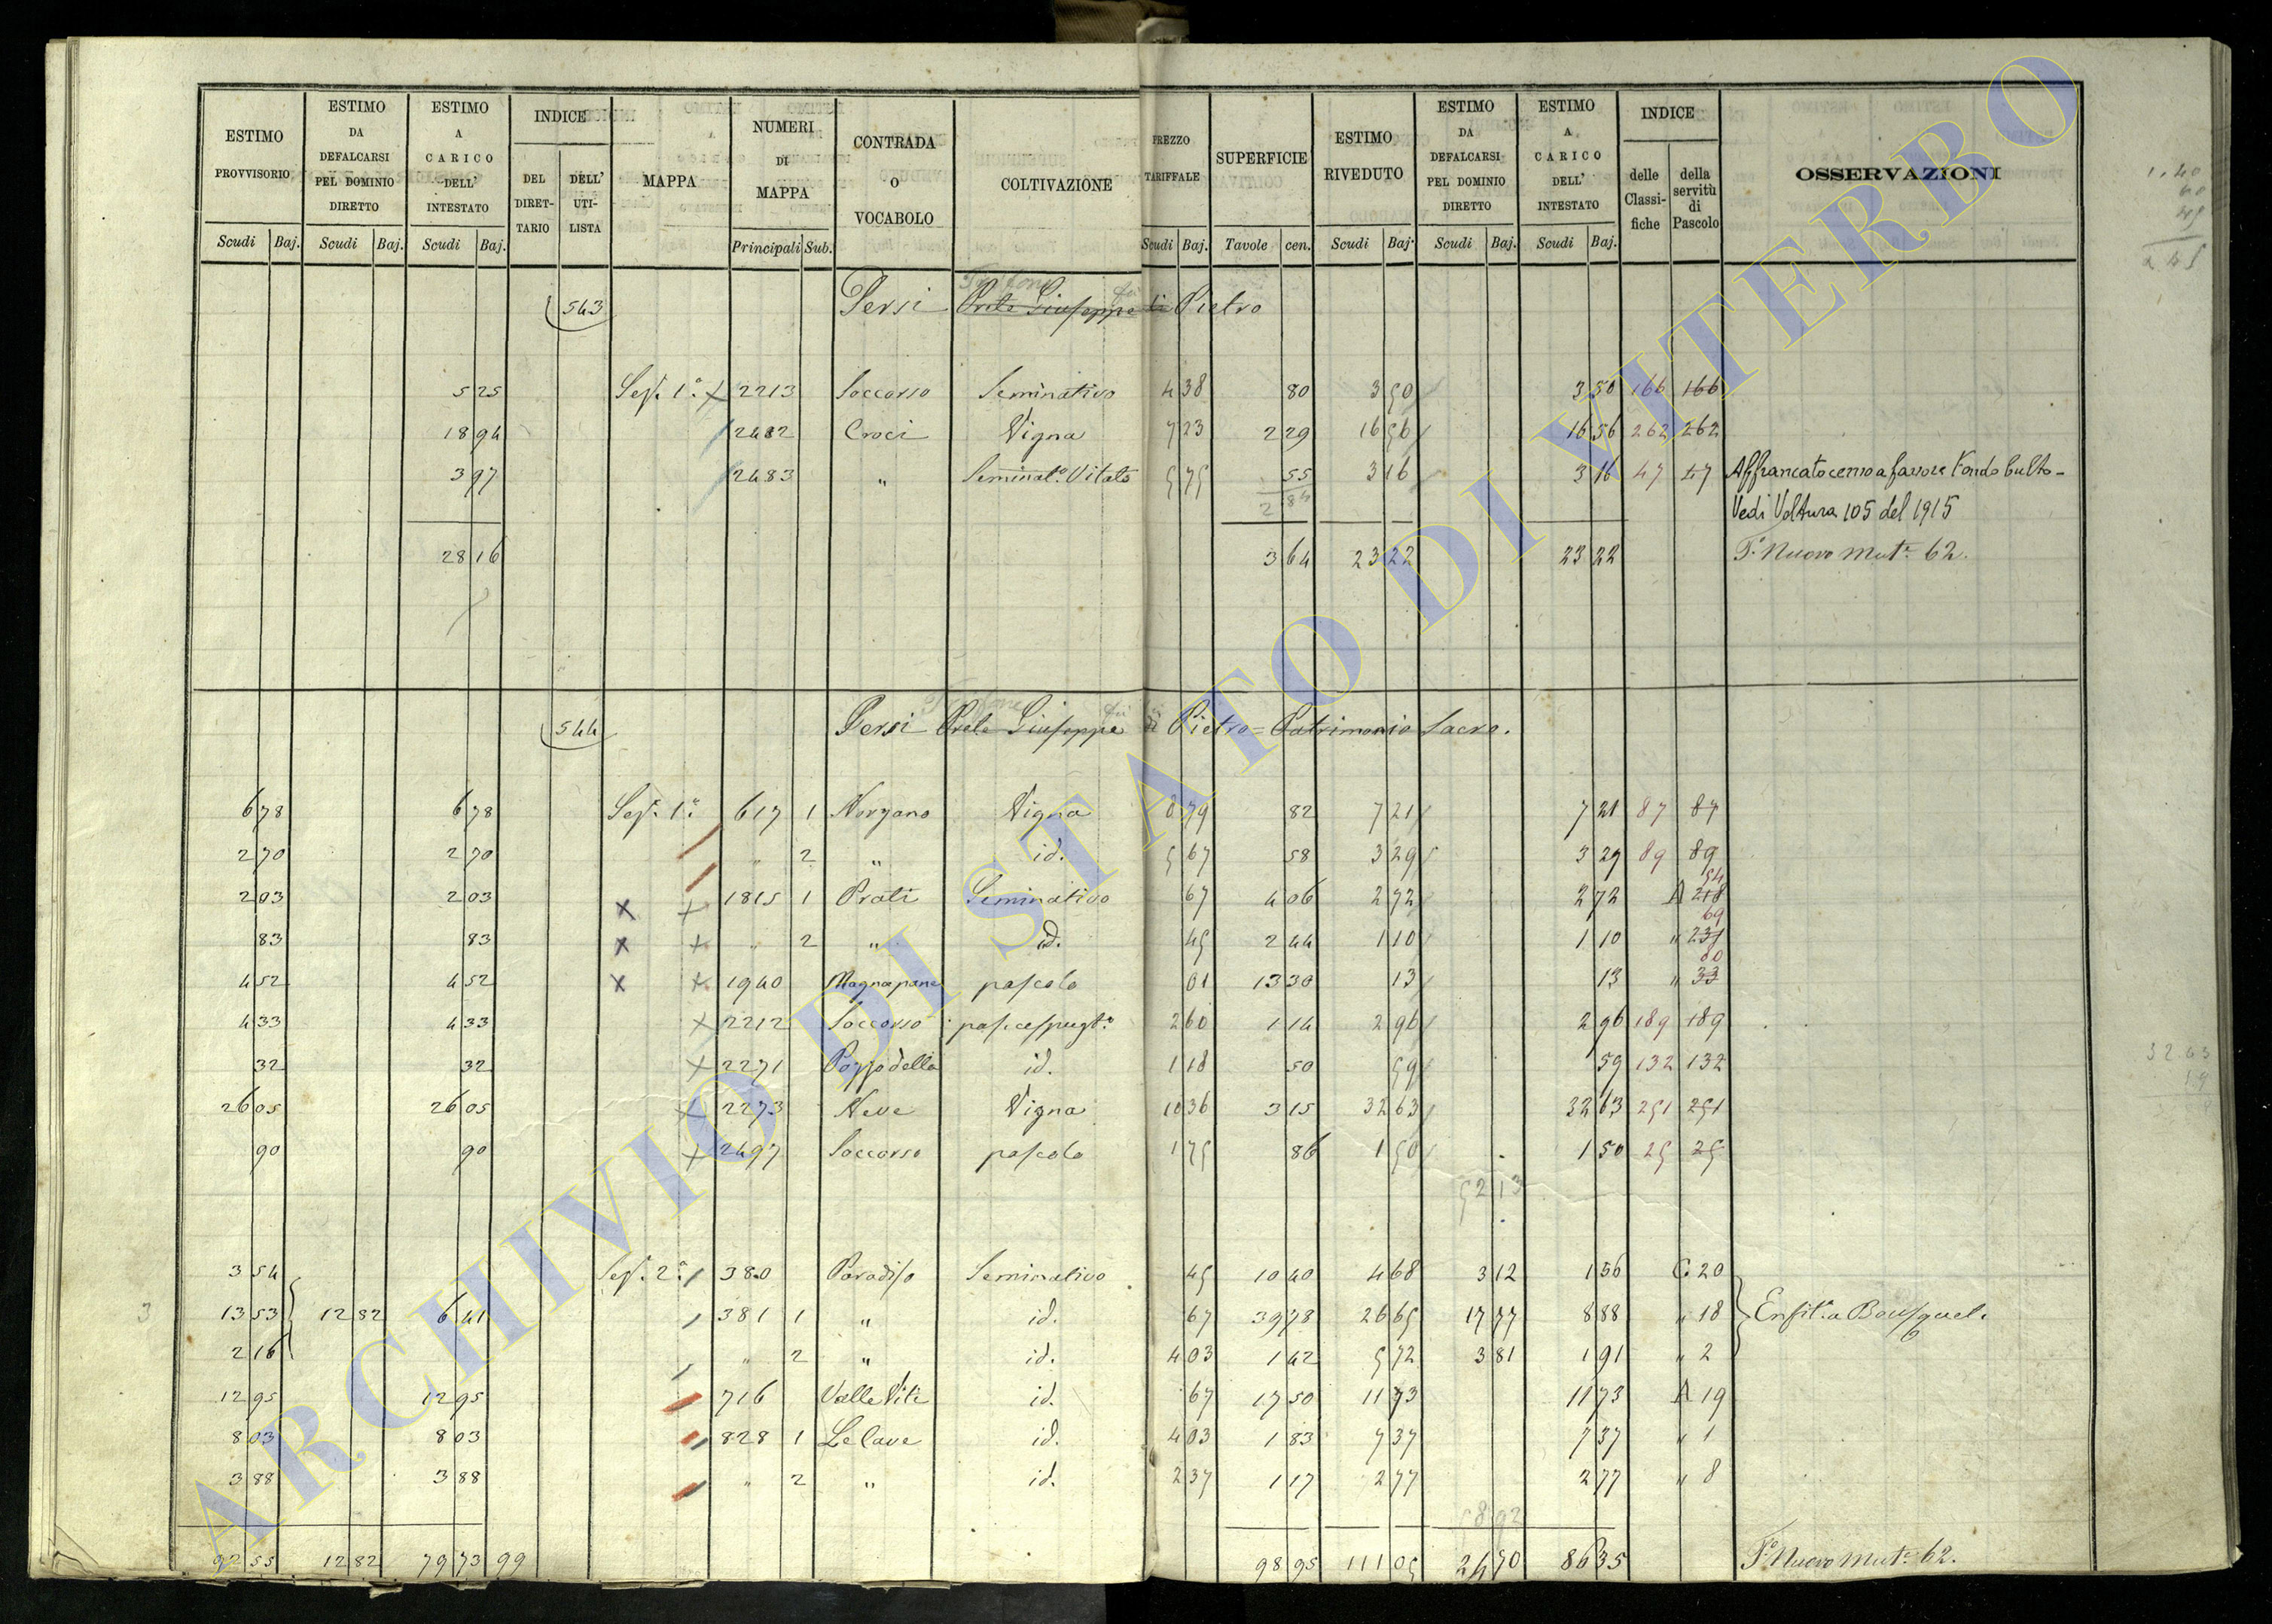 ESTIMO PROVVISORIO | ESTIMO DA DEFALCARSI PEL DOMINIO DIRETTO | ESTIMO A CARICO DELL' INTESTATO | INDICE | MAPPA | NUMERI DI MAPPA | CONTRADA O VOCABOLO | COLTIVAZIONE | PREZZO TARIFFALE | SUPERFICIE | ESTIMO RIVEDUTO | ESTIMO DA DEFALCARSI PEL DOMINIO DIRETTO | ESTIMO A CARICO DELL' INTESTATO | INDICE | OSSERVAZIONI
DEL DIRETTARIO | DELL' UTILISTA | delle Classifiche | della servitù di Pascolo
Scudi | Baj. | Scudi | Baj. | Scudi | Baj. | Principali | Sub. | Scudi | Baj. | Tavole | cen. | Scudi | Baj. | Scudi | Baj. | Scudi | Baj.
543 Persi Prete Giuseppe di Pietro
5 25 Sez. 1a 2213 Soccorso Seminativo 4 38 80 3 50 3 50 166 166
18 94 2482 Croci Vigna 7 23 2 29 16 56 16 56 262 262
3 97 2483 " Seminato. Vitato 5 75 55 3 16 3 16 47 47 Affrancato censo a favore Fondo Culto -
2 84 Vedi Voltura 105 del 1915
28 16 3 64 23 22 23 22 Fo. Nuovo Muta. 62.
544 Persi Prete Giuseppe di Pietro = Patrimonio Sacro.
6 78 6 78 Sez. 1a 617 1 Norzano Vigna 8 79 82 7 21 7 21 87 87
2 70 2 70 " 2 " id. 5 67 58 3 29 3 29 89 89
2 03 2 03 1815 1 Prati Seminativo 67 4 06 2 72 2 72 A 218 54
83 83 " 2 " id. 45 2 44 1 10 1 10 " 231 69
4 52 4 52 1940 Magnapane pascolo 01 13 30 13 13 " 33 80
4 33 4 33 2212 Soccorso 2 60 1 14 2 96 2 96 189 189
32 32 2271 Pozzo della id. 1 18 50 59 59 132 132
26 05 26 05 2273 Neve Vigna 10 36 3 15 32 63 32 63 251 251
90 90 2497 Soccorso pascolo 1 75 86 1 50 1 50 25 25
52 13
3 54 Sez. 2a 380 Paradiso Seminativo 45 10 40 4 68 3 12 1 56 C. 20
13 53 12 82 6 41 381 1 " id. 67 39 78 26 65 17 77 8 88 " 18 Enfit. a Bousquet.
2 16 " 2 " id. 4 03 1 42 5 72 3 81 1 91 " 2
12 95 12 95 716 Valle Viti id. 67 17 50 11 73 11 73 A 19
8 03 8 03 828 1 Le Cave id. 4 03 1 83 7 37 7 37 " 1
3 88 3 88 " 2 " id. 2 37 1 17 2 77 2 77 " 8
58 92
92 55 12 82 79 73 99 98 95 111 05 24 70 86 35 Fo. Nuovo Muta. 62.
ARCHIVIO DI STATO DI VITERBO